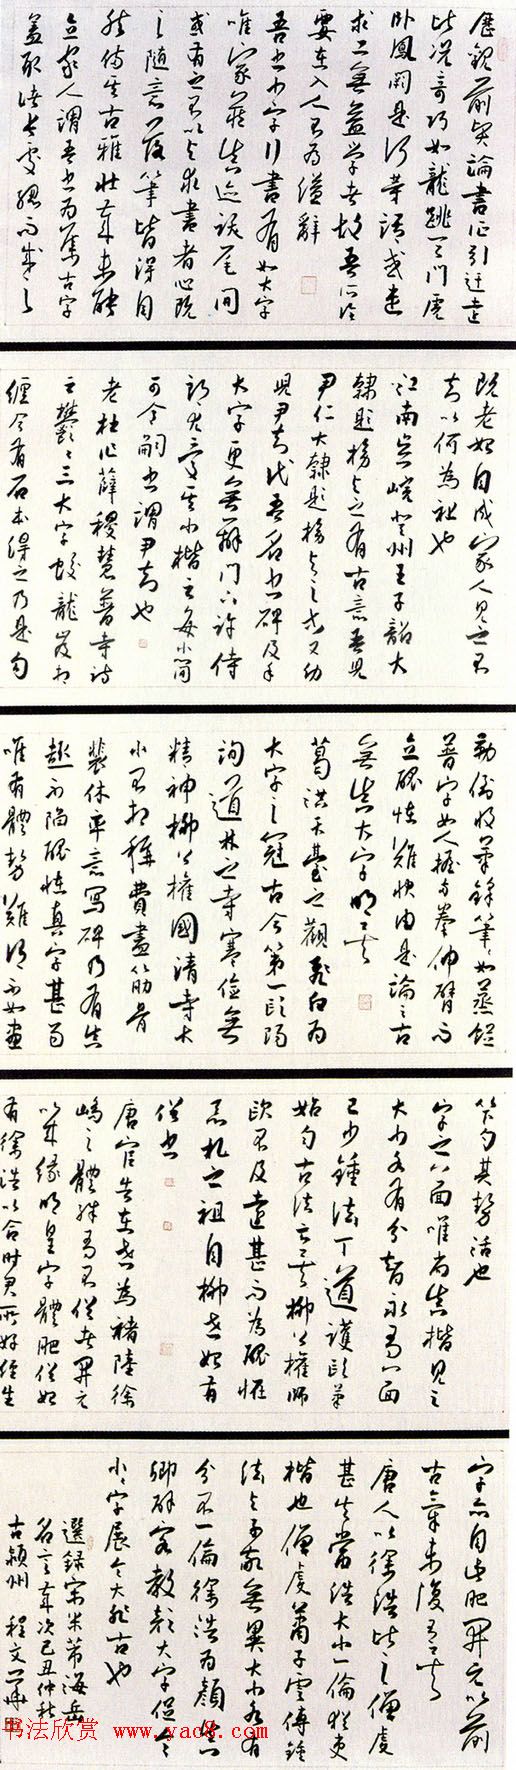 歷觀前賢論書征引迂遠
比況奇巧如龍跳天門虎
卧鳳闕是何等語或遣
求工無益學者故吾所論
要在入人不為溢辭
吾書小字行書有如大字
唯家藏真迹跋尾間
或有之不以與求書者心既
之隨意落筆皆得自
然備其古雅壯歲未能
立家人謂吾書為集古字
蓋取諸長處總而成之
既老始自成家人見之不
知以何為祖也
江南吳皖登州王子韶大
隸題榜與之有古意吾兒
尹仁大隸題榜與之等又幼
兒尹知代吾名書碑及手
大字更無辨門下許侍
郎尤愛其小楷云每小簡
可令嗣書謂尹知也
老杜作薛稷慧普寺詩
云鬱鬱三大字蛟龍岌相
纏今有石本得之乃是勾
勒倒收筆鋒筆筆如蒸餅
普字如人握兩拳伸臂而
立醜怪難狀由是論之古
無真大字明矣
葛洪天臺之觀飛白為
大字之冠古今第一歐陽
詢道林之寺寒儉無
精神柳公權國清寺大
小不相稱費盡筋骨
裴休率意寫碑乃有真
趣不陷醜怪真字甚易
唯有體勢難謂不如畫
筭勻其勢活也
字之八面唯尚真楷見之
大小各有分智永有八面
已少鍾法丁道護歐筆
始勻古法亡矣柳公權師
歐不及遠甚而為醜怪
惡札之祖自柳世始有
俗書
唐官告在世為褚陸徐
嶠之體殊有不俗者開元
以來緣明皇字體肥俗始
有徐浩以合時君所好經生
字亦自此肥開元以前
古氣未復有矣
唐人以徐浩比之僧虔
甚失當浩大小一倫猶吏
楷也僧虔蕭子雲傳鍾
法與子敬無異大小各有
分不一倫徐浩為顏真
卿辟客教顏大字促令
小小字展令大非古也
選録宋米芾海岳
名言歲次己丑仲秋
古潁州 程文華
书法欣赏 www.yac8.com